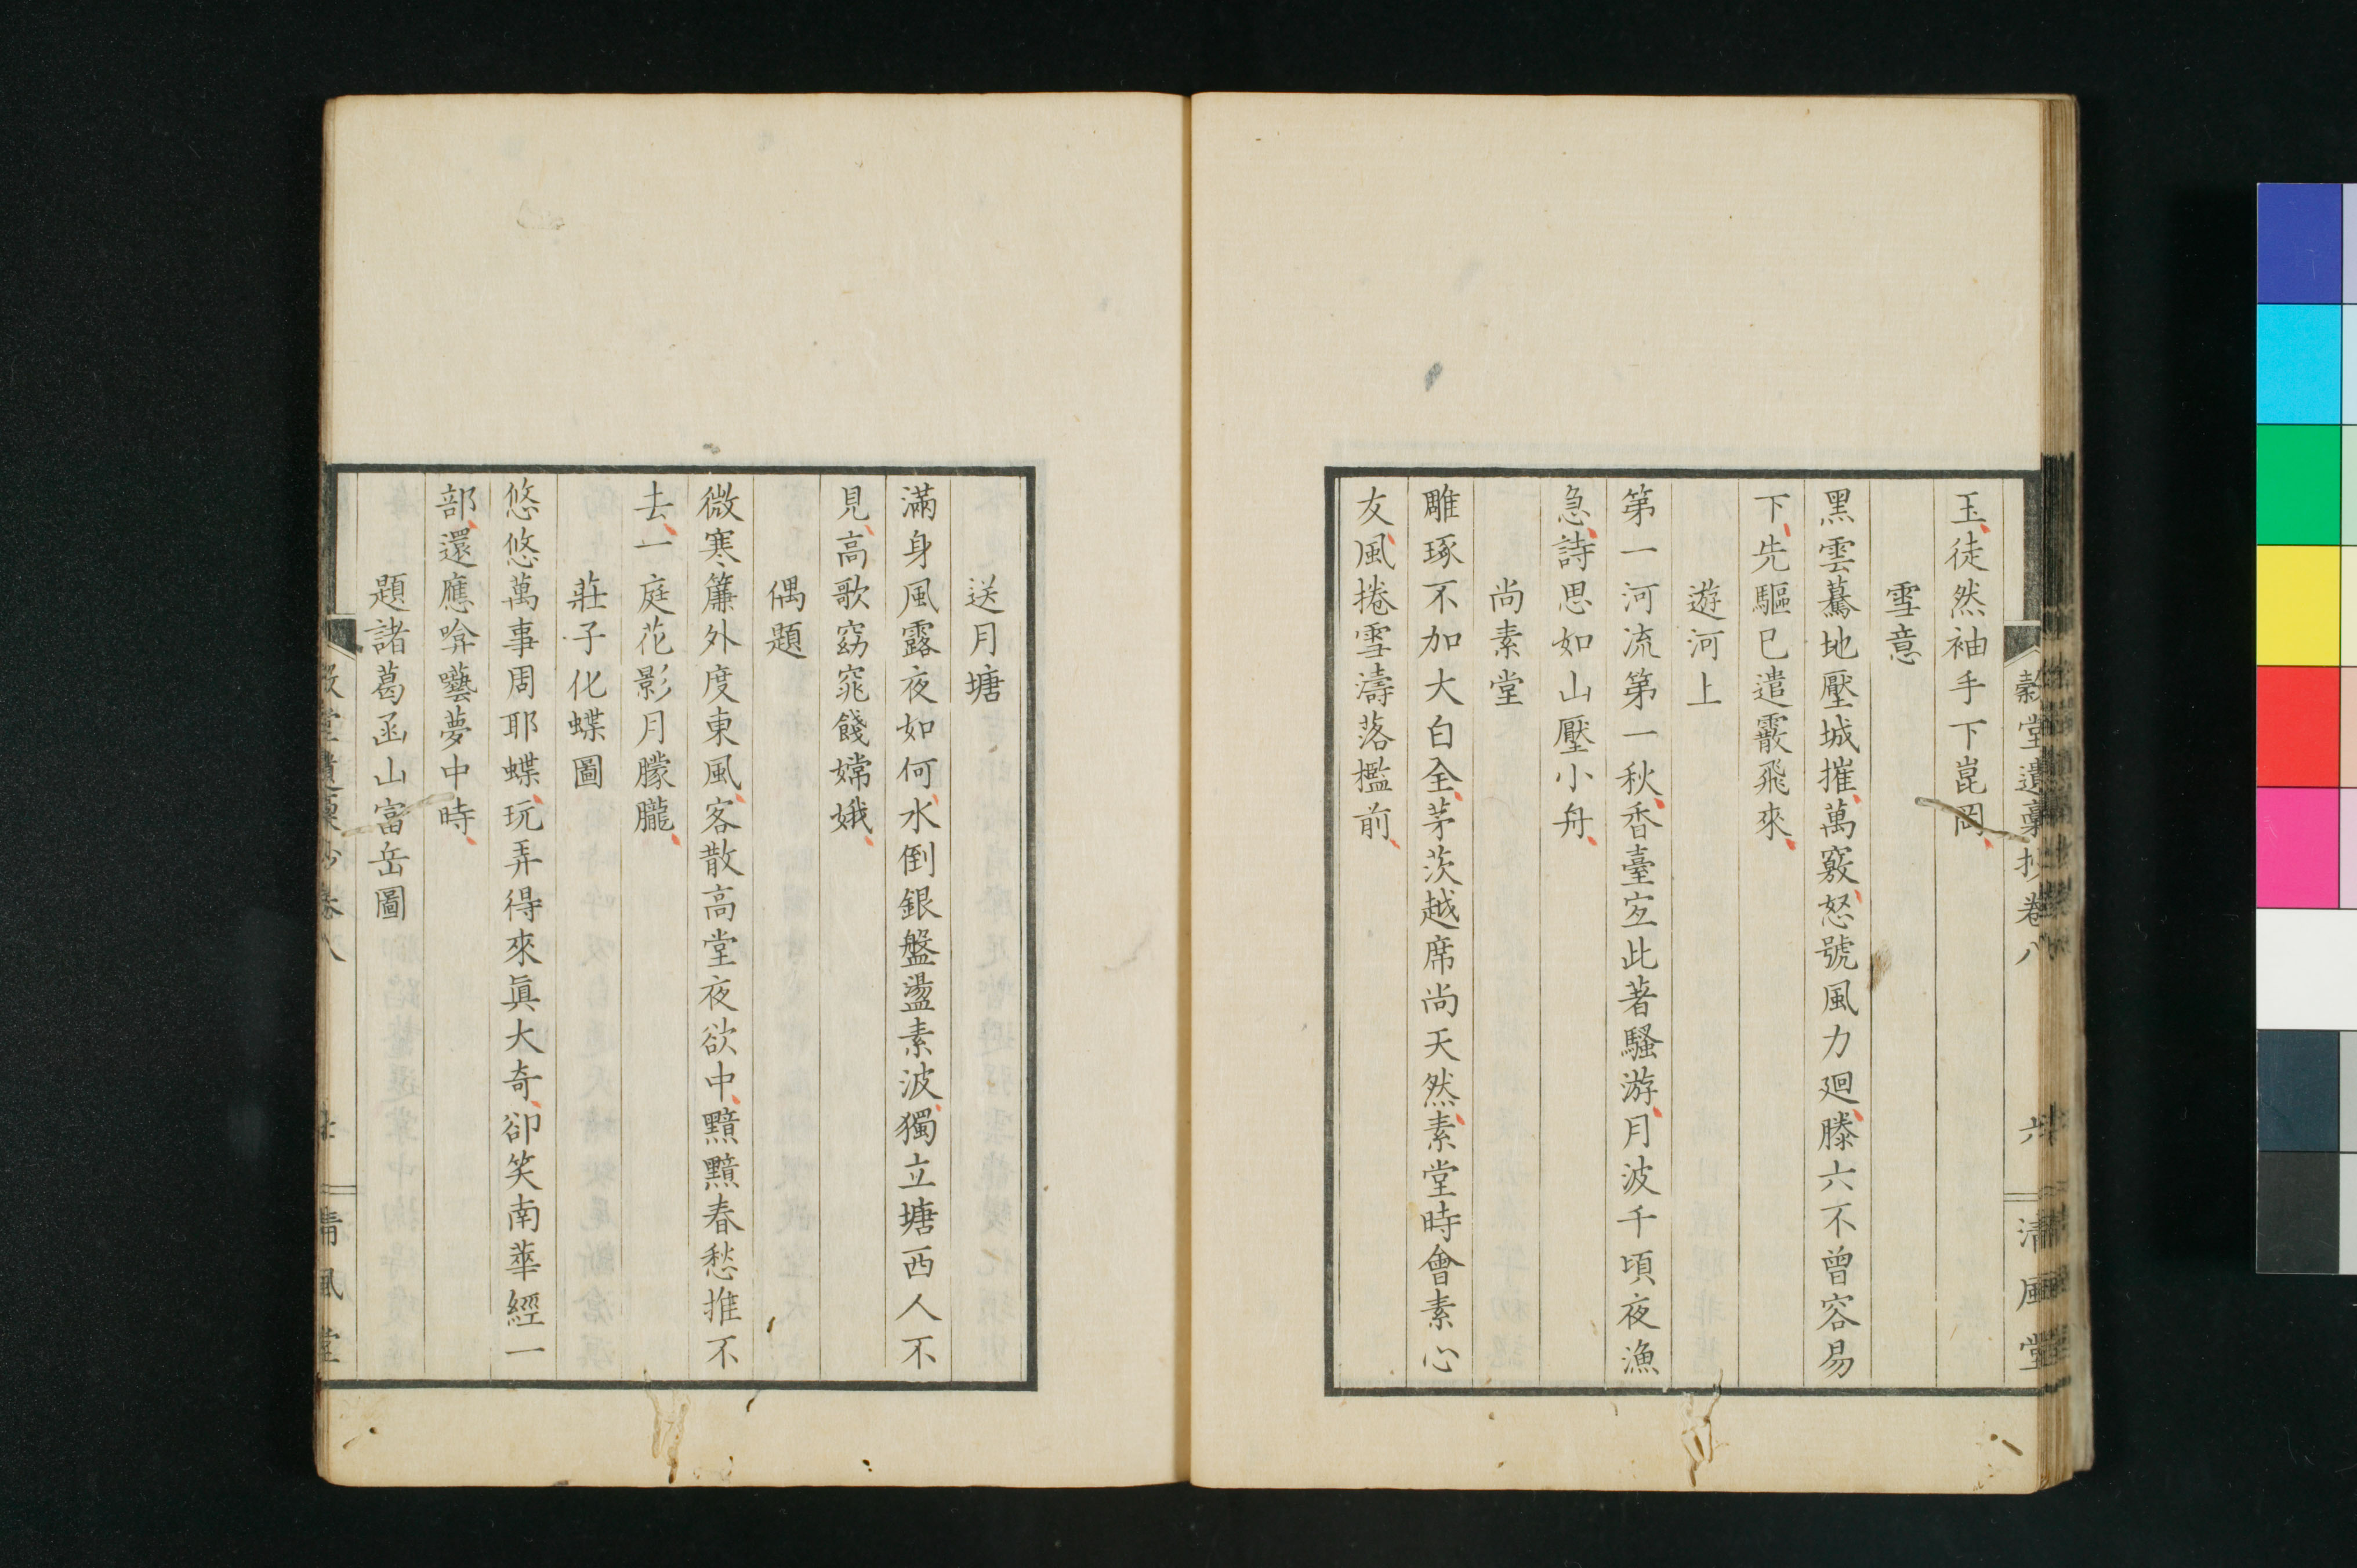 穀堂遺稾抄卷八 六 清風堂
玉徒然袖手下崑岡
雪意
黑雲驀地壓城摧萬竅怒號風力廻滕六不曾容易
下先驅已遣霰飛來
遊河上
第一河流第一秋香臺宜此著騷游月波千頃夜漁
急詩思如山壓小舟
尚素堂
雕琢不加大白全茅茨越席尚天然素堂時會素心
友風捲雪濤落檻前
送月塘
滿身風露夜如何水倒銀盤盪素波獨立塘西人不
見高歌窈窕餞嫦娥
偶題
微寒簾外度東風客散高堂夜欲中黯黯春愁推不
去一庭花影月朦朧
莊子化蝶圖
悠悠萬事周耶蝶玩弄得來眞大奇卻笑南華經一
部還應唫囈夢中時
題諸葛函山富岳圖
穀堂遺稾抄卷八 清風堂